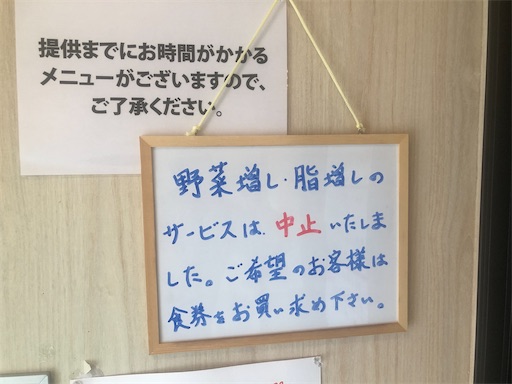 提供までにお時間がかかる
メニューがございますので、
ご了承ください。
野菜増し・脂増しの
サービスは、中止いたしま
した。ご希望のお客様は
食券をお買い求め下さい。